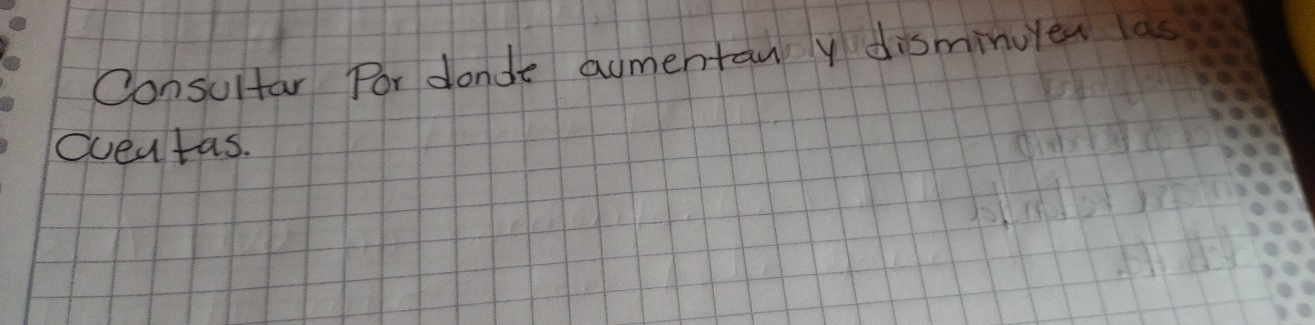 Consultar Por donde aumentan y disminuyen las
cuentas.